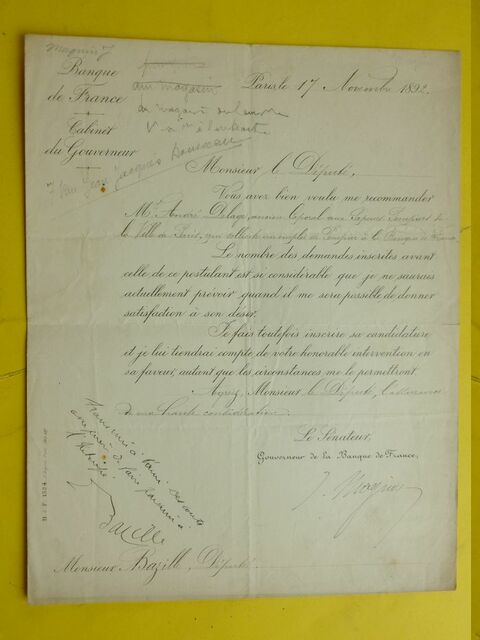 Magnin J
Banque
de France
Cabinet
du Gouverneur
au magasin
7 rue Jean Jacques Rousseau
Paris, le 17 Novembre 1892.
Monsieur le Député,
Vous avez bien voulu me recommander
Mr. André Delage, ancien Caporal aux Sapeurs Pompiers de
la Ville de Paris, qui sollicite un emploi de Pompier à la Banque de France.
Le nombre des demandes inscrites avant
celle de ce postulant est si considérable que je ne saurais
actuellement prévoir quand il me sera possible de donner
satisfaction à son désir.
Je fais toutefois inscrire sa candidature
et je lui tiendrai compte de votre honorable intervention en
sa faveur, autant que les circonstances me le permettront.
Agréez, Monsieur le Député, l'assurance
de ma haute considération.
Le Sénateur,
Gouverneur de la Banque de France,
J. Magnin
Transmis à
Bazille
Monsieur Bazille, Député.